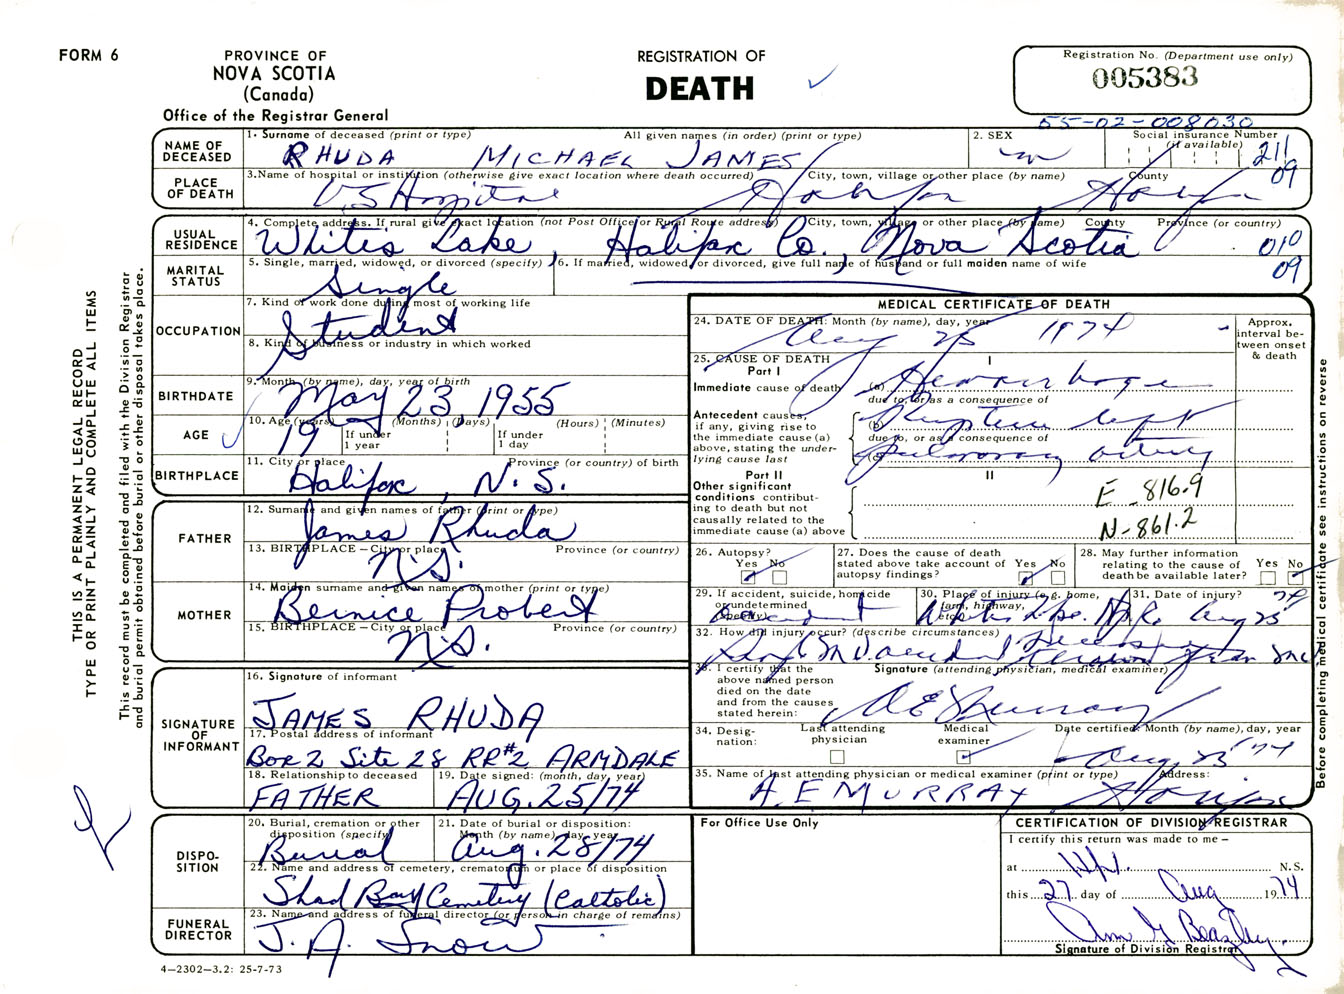 FORM 6
PROVINCE OF
NOVA SCOTIA
(Canada)
Office of the Registrar General
REGISTRATION OF
DEATH
Registration No. (Department use only)
005383
55-02-008030
NAME OF DECEASED
1. Surname of deceased (print or type) All given names (in order) (print or type)
RHUDA MICHAEL JAMES
2. SEX
m
Social insurance Number
(if available)
211
09
PLACE OF DEATH
3. Name of hospital or institution (otherwise give exact location where death occurred) City, town, village or other place (by name) County
Hospital Halifax Halifax
USUAL RESIDENCE
4. Complete address. If rural give exact location (not Post Office or Rural Route address) City, town, village or other place (by name) County Province (or country)
Whites Lake, Halifax Co., Nova Scotia
010
09
MARITAL STATUS
5. Single, married, widowed, or divorced (specify)
Single
6. If married, widowed or divorced, give full name of husband or full maiden name of wife
OCCUPATION
7. Kind of work done during most of working life
Student
8. Kind of business or industry in which worked
BIRTHDATE
9. Month (by name), day, year of birth
May 23 1955
AGE
10. Age (years) (Months) (Days) (Hours) (Minutes)
19
If under 1 year
If under 1 day
BIRTHPLACE
11. City or place Province (or country) of birth
Halifax, N.S.
FATHER
12. Surname and given names of father (print or type)
James Rhuda
13. BIRTHPLACE — City or place Province (or country)
N.S.
MOTHER
14. Maiden surname and given names of mother (print or type)
Bernice Probert
15. BIRTHPLACE — City or place Province (or country)
N.S.
SIGNATURE OF INFORMANT
16. Signature of informant
JAMES RHUDA
17. Postal address of informant
Box 2 Site 28 RR#2 ARMDALE
18. Relationship to deceased
FATHER
19. Date signed: (month, day, year)
AUG. 25/74
DISPOSITION
20. Burial, cremation or other disposition (specify)
Burial
21. Date of burial or disposition: Month (by name), day, year
Aug. 28/74
22. Name and address of cemetery, crematorium or place of disposition
Shad Bay Cemetery (Cattolic)
FUNERAL DIRECTOR
23. Name and address of funeral director (or person in charge of remains)
J. A. Snow
4—2302—3.2: 25-7-73
MEDICAL CERTIFICATE OF DEATH
24. DATE OF DEATH: Month (by name), day, year
Aug 25 1974
Approx. interval between onset & death
25. CAUSE OF DEATH
Part I
I
Immediate cause of death
(a) Hemorrhage
due to, or as a consequence of
Antecedent causes, if any, giving rise to the immediate cause (a) above, stating the underlying cause last
(b) Rupture left
due to, or as a consequence of
(c) pulmonary artery
Part II
II
Other significant conditions contributing to death but not causally related to the immediate cause (a) above
E-816.9
N-861.2
26. Autopsy?
Yes No
27. Does the cause of death stated above take account of autopsy findings?
Yes No
28. May further information relating to the cause of death be available later?
Yes No
29. If accident, suicide, homicide or undetermined (specify)
accident
30. Place of injury (e.g. home, farm, highway, etc.)
Whites Lake
31. Date of injury?
Aug 25 74
32. How did injury occur? (describe circumstances)
accident from
33. I certify that the above named person died on the date and from the causes stated herein:
Signature (attending physician, medical examiner)
A E Murray
34. Designation:
Last attending physician
Medical examiner
Date certified: Month (by name), day, year
Aug. 25 '74
35. Name of last attending physician or medical examiner (print or type) Address:
A. E MURRAY Halifax
For Office Use Only
CERTIFICATION OF DIVISION REGISTRAR
I certify this return was made to me —
at N.S.
this 27 day of Aug 1974
Signature of Division Registrar
THIS IS A PERMANENT LEGAL RECORD
TYPE OR PRINT PLAINLY AND COMPLETE ALL ITEMS
This record must be completed and filed with the Division Registrar
and burial permit obtained before burial or other disposal takes place.
Before completing medical certificate see instructions on reverse